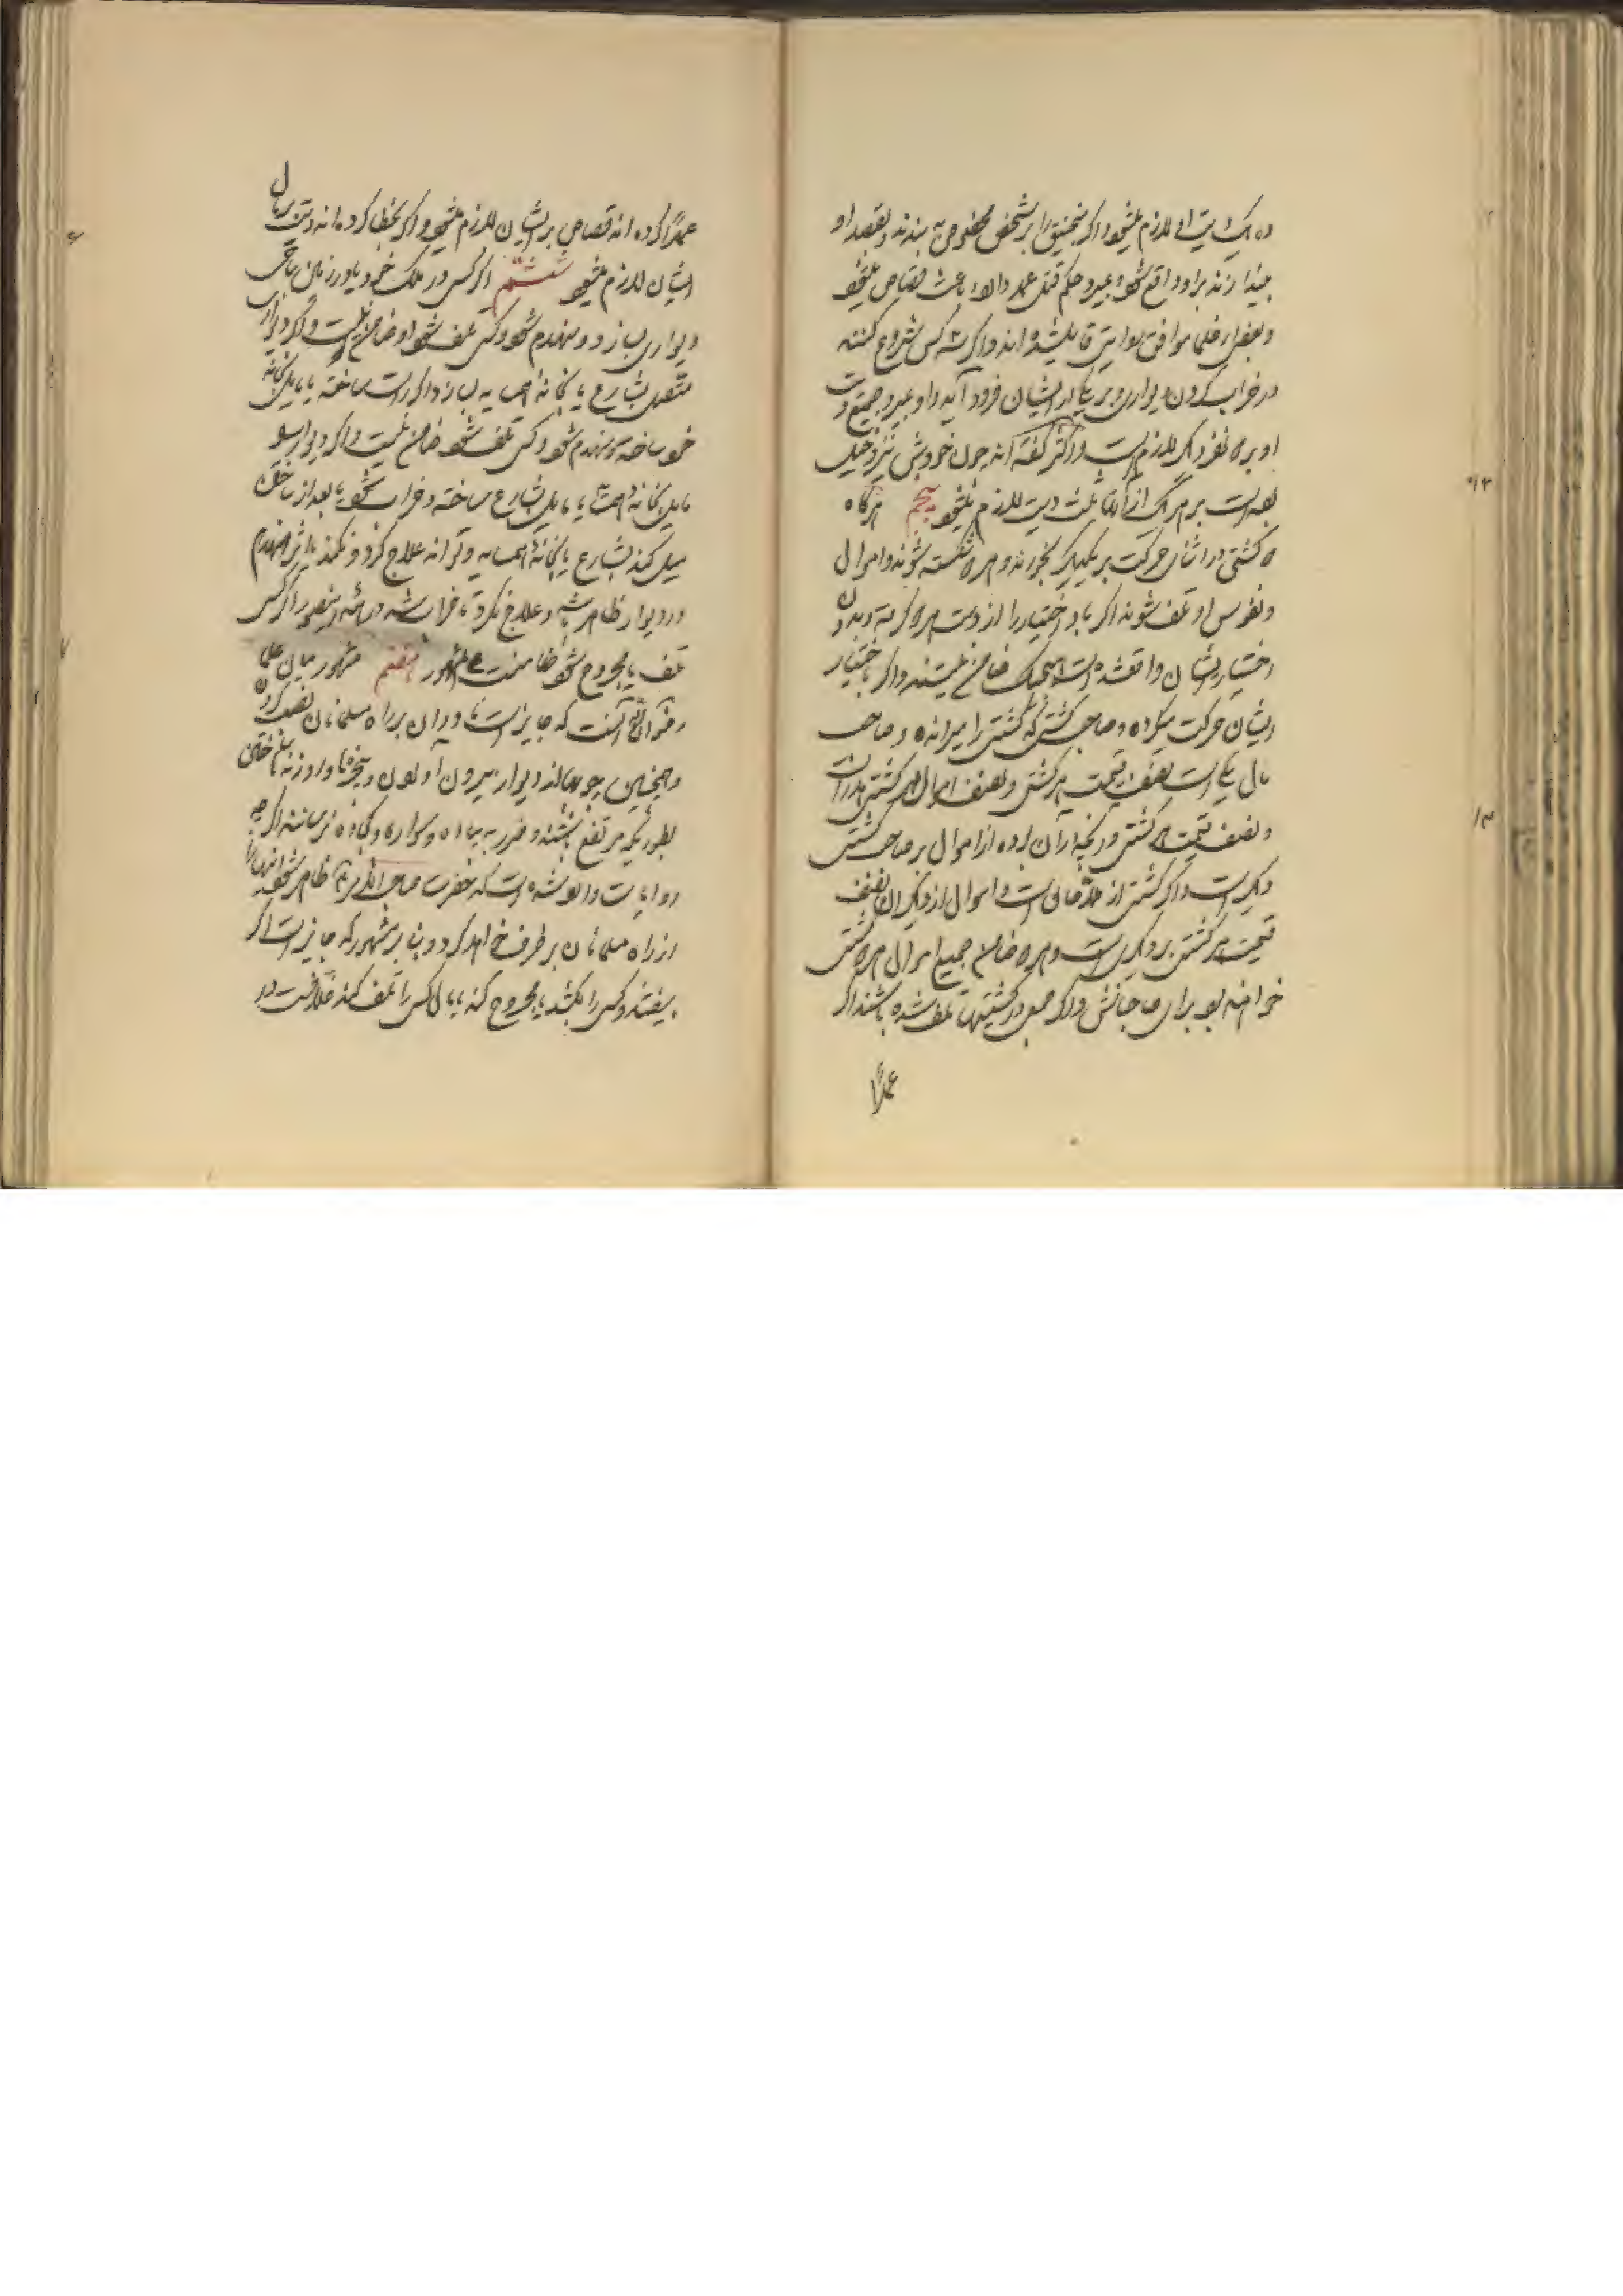 ده یک دیت او لازم میشود و اگر منجنیق را بر شخص مخصوصی به بندند و بقصد او
بیندازند و بر او واقع شود و بمیرد حکم قتل عمد دارد و باعث قصاص میشود
و بعضی از علما موافق روایتی قایل شده اند و اگر سه کس شروع کنند
در خراب کردن دیواری و بر یکی از ایشان فرود آید و او بمیرد جمیع دیت
او بر دو نفر دیگر لازم است و اکثر گفته اند چون خودش نیز دخیل
بوده است بر هر یک از آنها ثلث دیت لازم میشود پنجم هرگاه
دو کشتی در اثنای حرکت بر یکدیگر بخورند و هر دو شکسته شوند و اموال
و نفوس او تلف شوند اگر باد اختیار را از دست هر دو گرفته و بدون
اختیار ایشان واقع شده است هیچیک ضامن نیستند و اگر باختیار
ایشان حرکت میکرده و صاحب کشتی که کشتی را میرانده و صاحب
مال یکی است نصف قیمت هر کشتی و نصف اموال هر کشتی هدر است
و نصف قیمت هر کشتی و آنچه در آن بوده از اموال بر صاحب کشتی
دیگر است و اگر کشتی از ملاحان است و اموال از دیگران نصف
قیمت هر کشتی بر دیگری است و هر دو ضامن جمیع اموال هر دو کشتی
خواهند بود برای صاحبانش و اگر جمعی در کشتیها تلف شده باشند اگر
عمداً
عمداً کرده اند قصاص بر ایشان لازم میشود و اگر بخطا کرده اند دیت بر مال
ایشان لازم میشود ششم اگر کسی در ملک خود یا در زمین مباحی
دیواری بسازد و منهدم شود و کسی تلف شود او ضامن نیست و اگر دیواری
متصل بشارع یا بخانه همسایه بسازد اگر راست ساخته یا مایل بخانه
خود ساخته و منهدم شود و کسی تلف شود ضامن نیست و اگر دیوار بسوی
مایل بخانه همسایه یا مایل بشارع ساخته و خراب شود یا بعد از ساختن
میل کند بشارع یا بخانه همسایه و تواند علاج کرد و نکند یا اثر انهدام
در دیوار ظاهر شد و علاج نکرد تا خراب شد در همه این صور اگر کسی
تلف یا مجروح شود ضامنست علی المشهور هفتم مشهور میان علما
آنست که جایز است ناودان بر راه مسلمانان نصب کردن
و همچنین چوبها از دیوار بیرون آوردن و پنجره ها و روزنه ها ساختن
بطوریکه مرتفع باشند و ضرر به پیاده و سواره و کجاوه نرسانند اگر چه
روایات وارد شده است که حضرت صاحب الامر ظاهر شود
از راه مسلمانان بر طرف خواهد کرد و بنا بر مشهور که جایز است اگر
بیفتند و کسی را بکشد یا مجروح کند یا مال کسی را تلف کند خلافست در